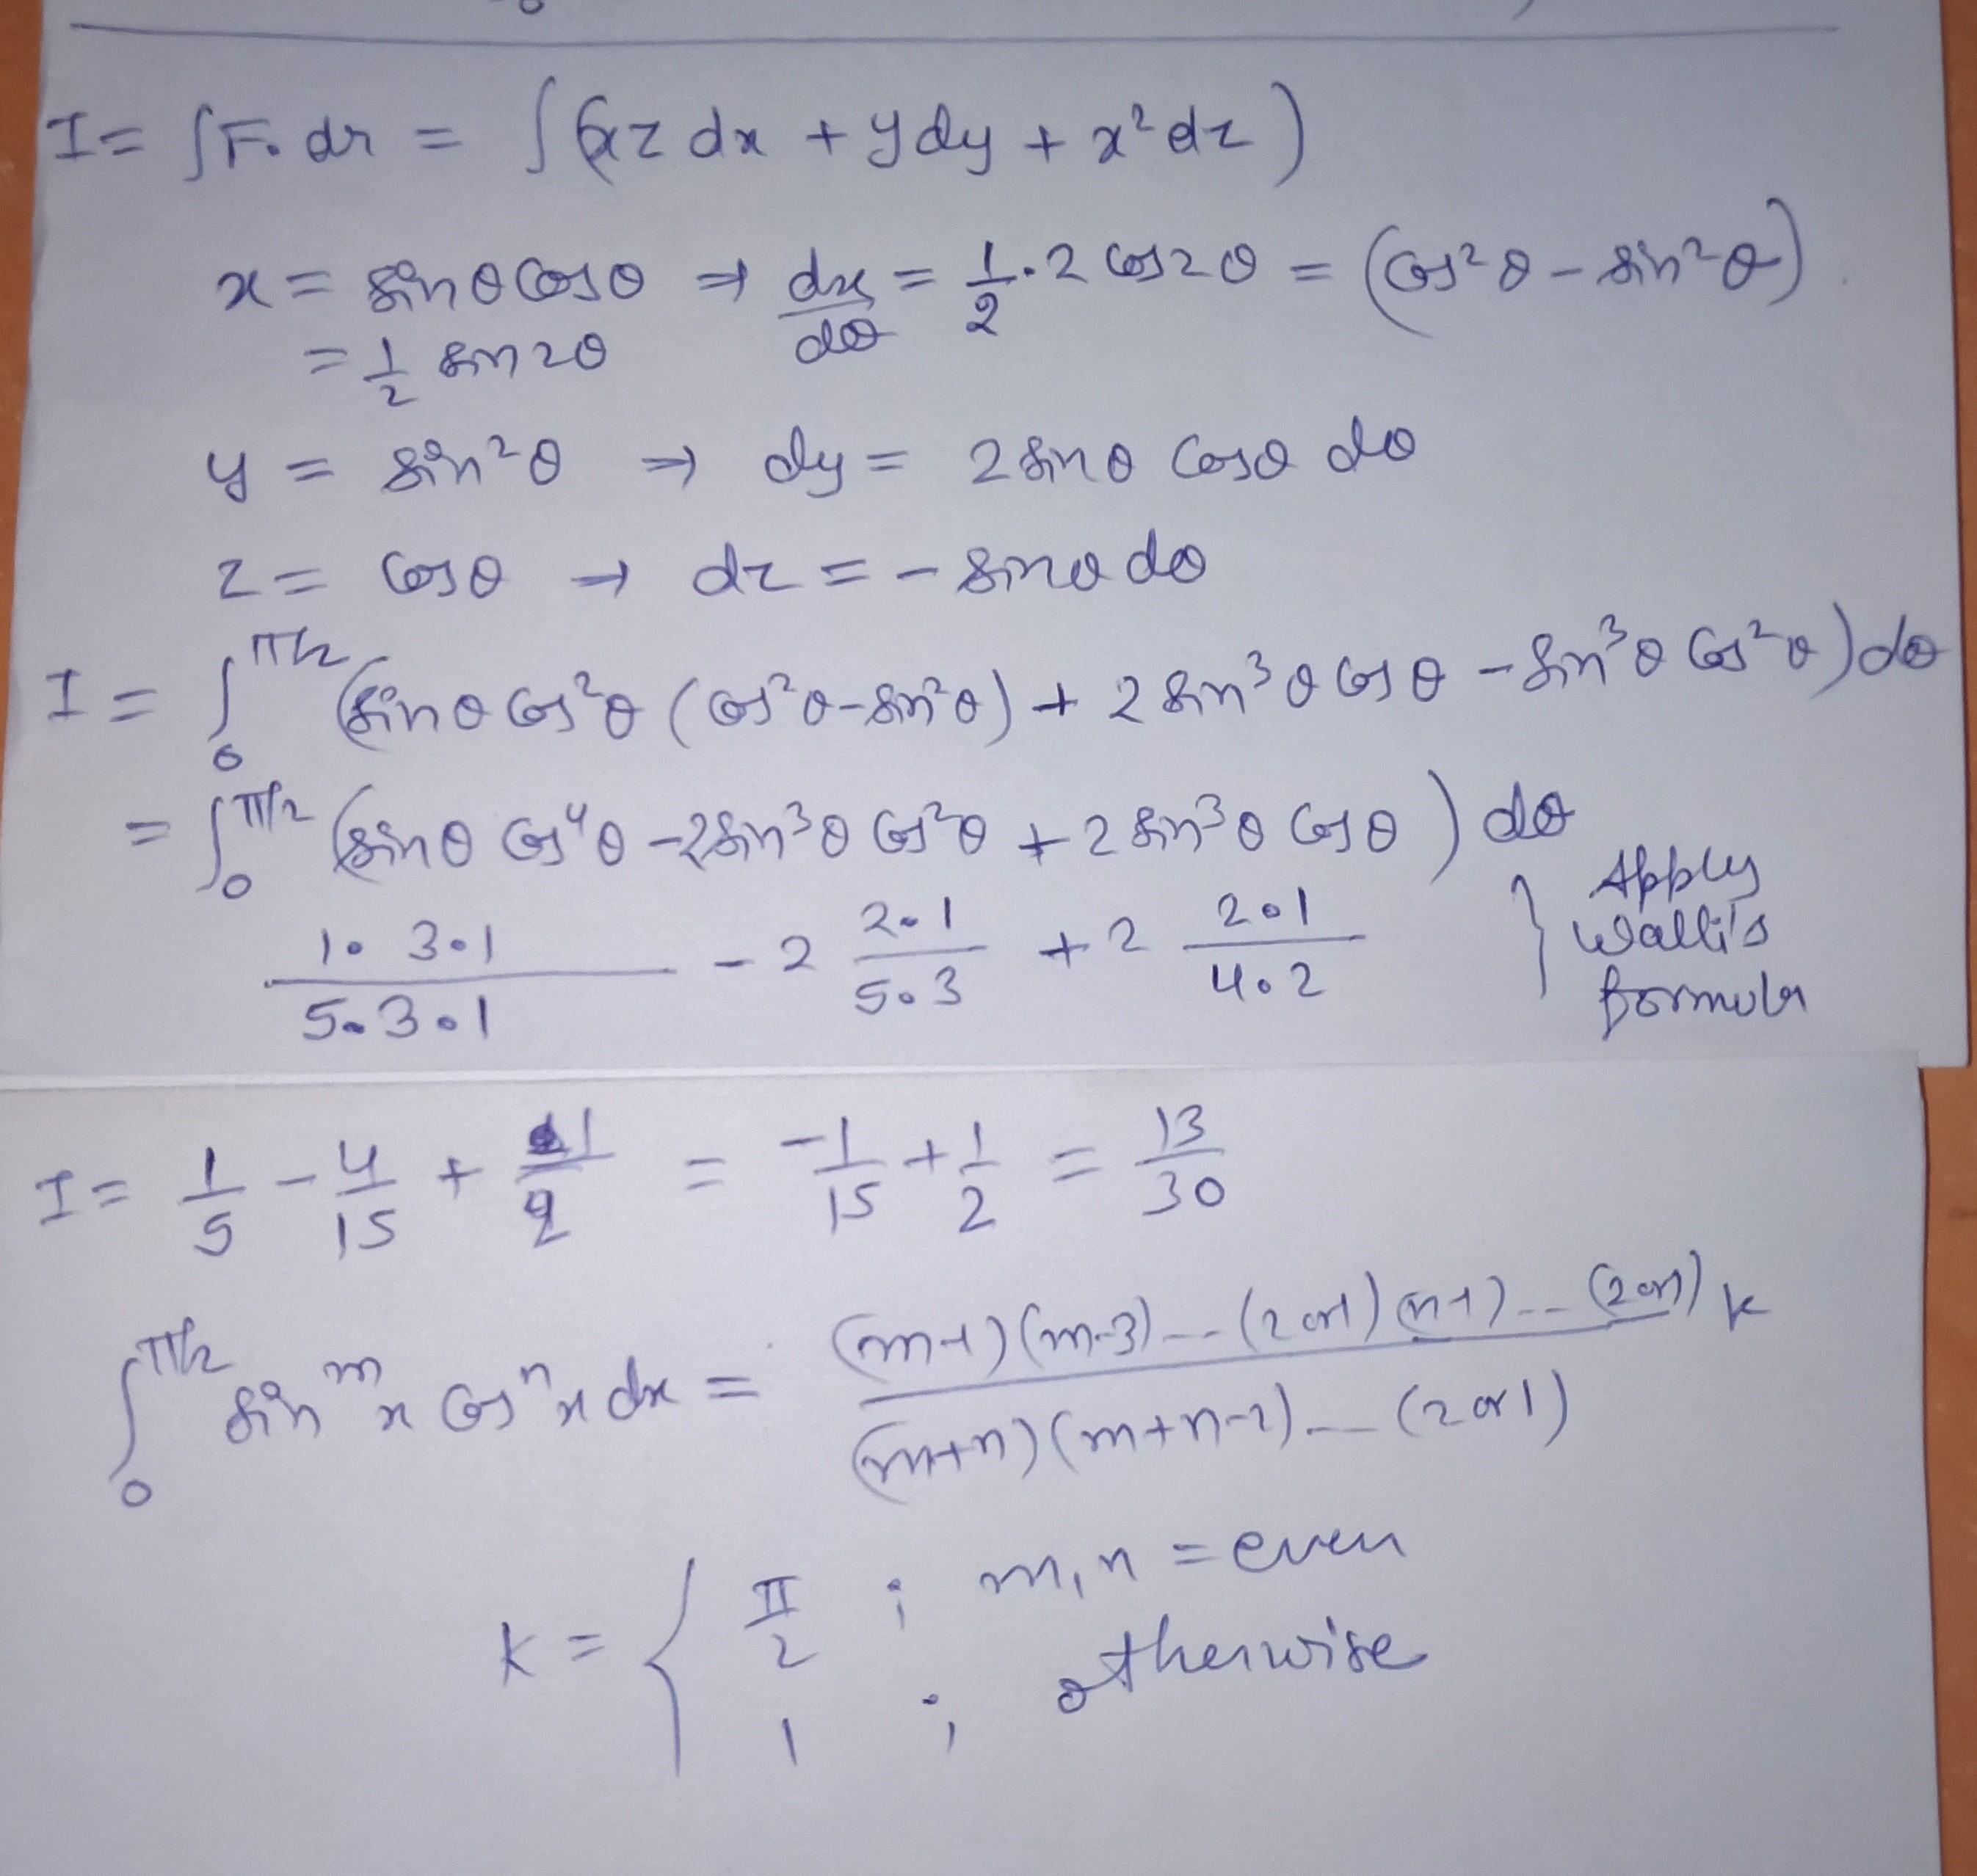 I = ∫F. dr = ∫(xz dx + y dy + x² dz)
x = sinθ cosθ ⇒ dx/dθ = 1/2 . 2 cos2θ = (cos²θ - sin²θ)
= 1/2 sin2θ
y = sin²θ ⇒ dy = 2 sinθ cosθ dθ
z = cosθ ⇒ dz = - sinθ dθ
I = ∫₀^π/2 (sinθ cos²θ (cos²θ - sin²θ) + 2 sin³θ cosθ - sin³θ cos²θ) dθ
= ∫₀^π/2 (sinθ cos⁴θ - 2 sin³θ cos²θ + 2 sin³θ cosθ) dθ
(1. 3.1)/(5.3.1) - 2 (2.1)/(5.3) + 2 (2.1)/(4.2) } Apply Walli's formula
I = 1/5 - 4/15 + 1/2 = -1/15 + 1/2 = 13/30
∫₀^π/2 sin^m x cos^n x dx = ((m-1)(m-3)---(2 or 1)(n-1)---(2 or 1))/((m+n)(m+n-2)---(2 or 1)) k
k = { π/2 ; m, n = even
1 ; otherwise